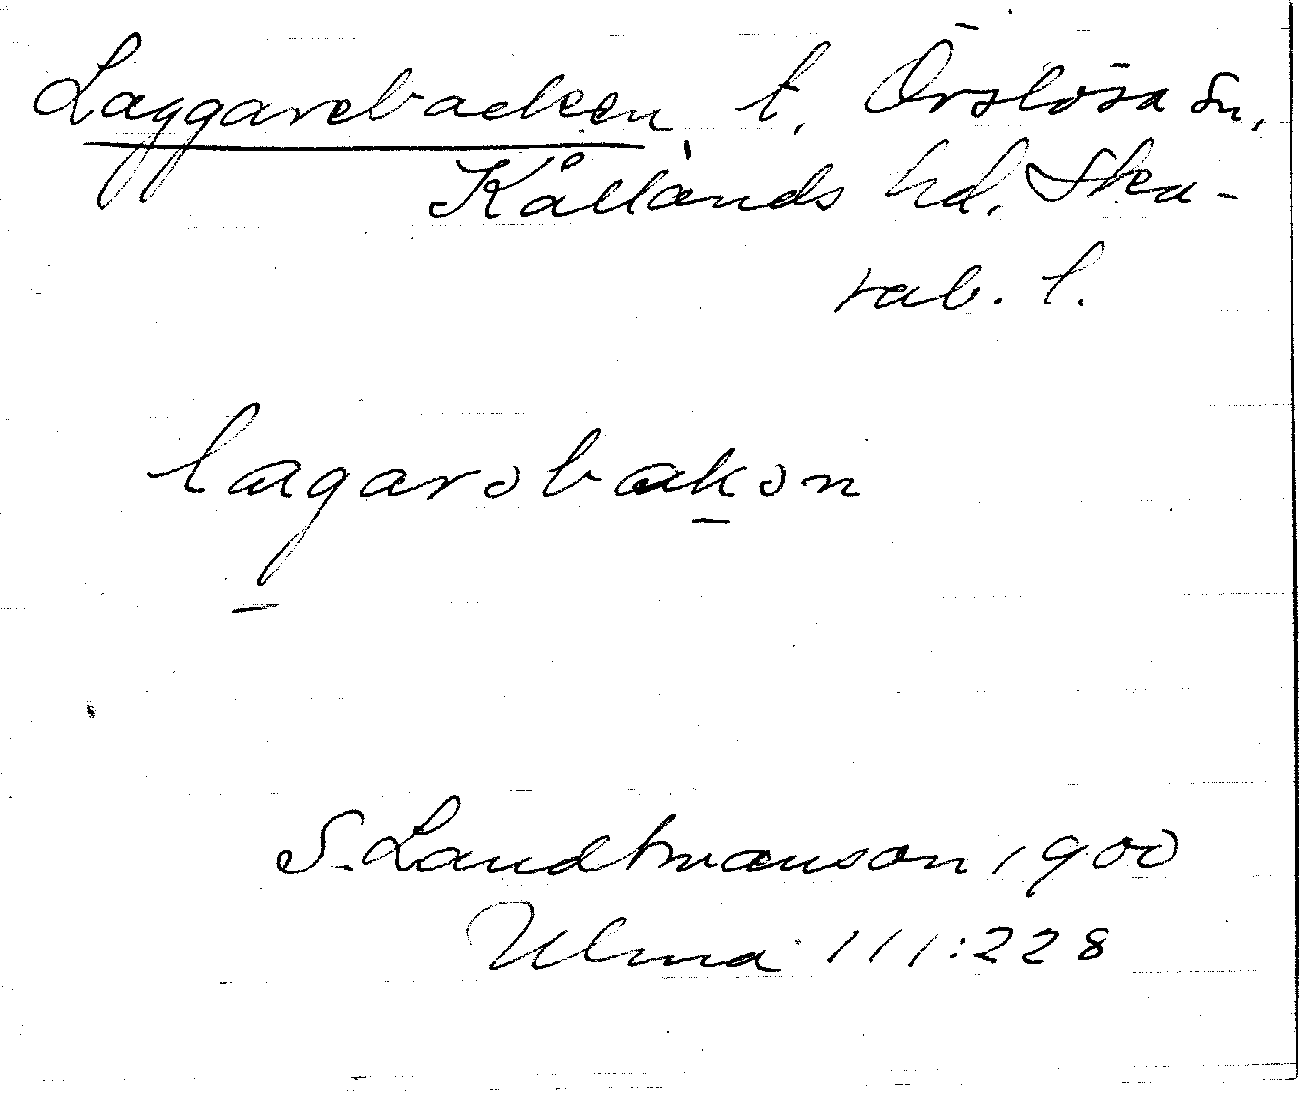 Laggarebacken, t. Örslösa sn,
Kållands hd. Ska-
rab. l.
lagarəbakən
S. Landtmanson 1900
Ulma 111:228